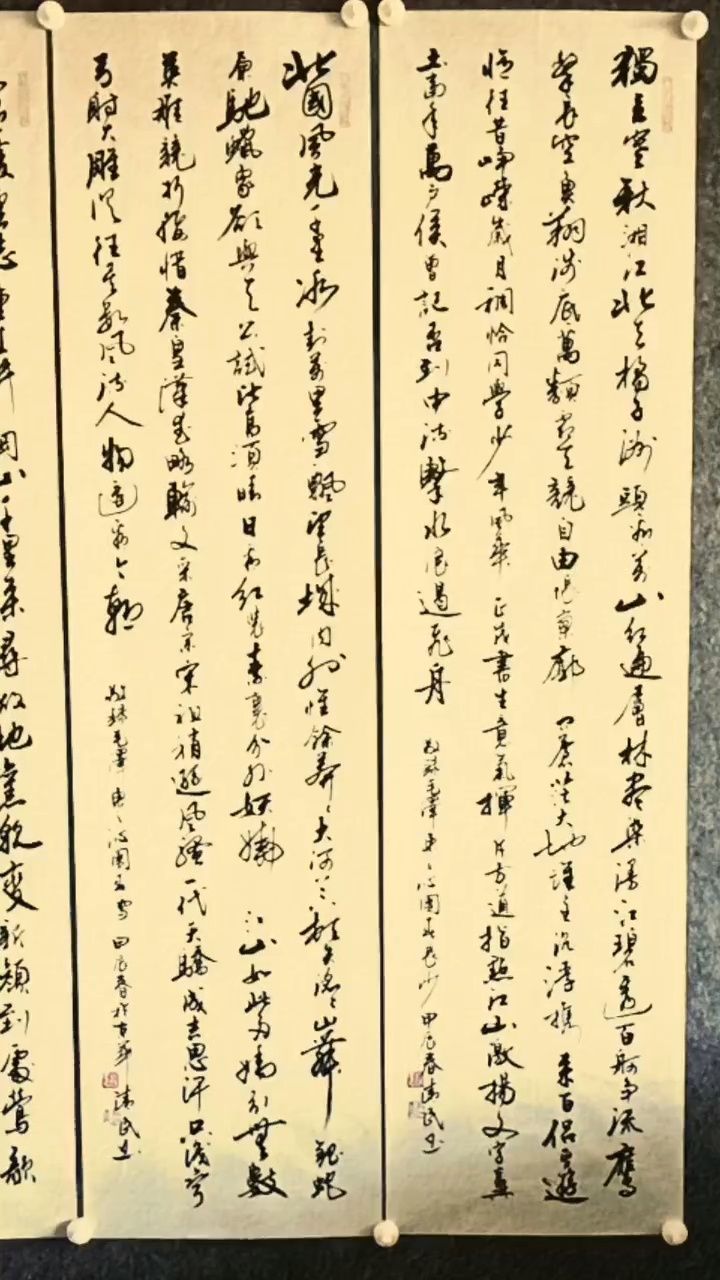 獨立寒秋湘江北去橘子洲頭看万山红遍層林盡染漫江碧透百舸争流鹰
擊長空魚翔淺底萬類霜天競自由悵寥廓 问蒼茫大地誰主沉浮携来百侣曾遊
憶往昔崢嶸歲月稠恰同學少年風華正茂書生意氣揮斥方遒指點江山激揚文字糞
土當年萬戶侯曾記否到中流擊水浪遏飛舟
敬録毛澤東〻沁園春長沙甲辰春
北國風光千里冰封萬里雪飄望長城内外惟餘莽〻大河上下頓失滔〻山舞銀蛇
原馳蠟象欲與天公試比高須晴日看红装素裹分外妖嬈 江山如此多嬌引無數
英雄競折腰惜秦皇漢武略輸文采唐宗宋祖稍遜風騷一代天驕成吉思汗只識彎
弓射大雕俱往矣數風流人物還看今朝
敬録毛澤東〻沁園春雪甲辰春於京華
久有凌雲志重上井岡山千里來尋故地舊貌變新顔到處鶯歌